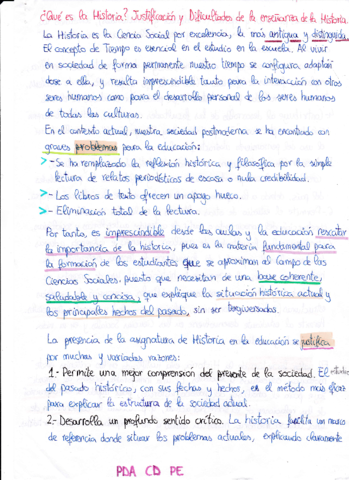 ¿Qué es la Historia? Justificación y Dificultades de la enseñanza de la Historia.
La Historia es la Ciencia Social por excelencia, la más antigua y distinguida.
El concepto de Tiempo es esencial en el estudio en la escuela. Al vivir
en sociedad de forma permanente nuestro tiempo se configura, adaptan
dose a ella, y resulta imprescindible tanto para la interacción con otros
seres humanos como para el desarrollo personal de los seres humanos
de todas las culturas.
En el contexto actual, nuestra sociedad postmoderna se ha encontrado con
graves problemas para la educación:
> - Se ha remplazado la reflexión histórica y filosófica por la simple
lectura de relatos periodísticos de escasa o nula credibilidad.
> - Los libros de texto ofrecen un apoyo hueco.
> - Eliminación total de la lectura.
Por tanto, es imprescindible desde las aulas y la educación rescatar
la importancia de la historia, pues es la materia fundamental para
la formación de los estudiantes que se aproximan al campo de las
Ciencias Sociales, puesto que necesitan de una base coherente,
saludable y concisa, que explique la situación histórica actual y
los principales hechos del pasado, sin ser tergiversados.
La presencia de la asignatura de Historia en la educación se justifica
por muchas y variadas razones:
1.- Permite una mejor comprensión del presente de la sociedad. El estudio
del pasado histórico, con sus fechas y hechos, es el método más eficaz
para explicar la estructura de la sociedad actual.
2.- Desarrolla un profundo sentido crítico. La historia facilita un marco
de referencia donde situar los problemas actuales, explicando claramente
PDA CD PE